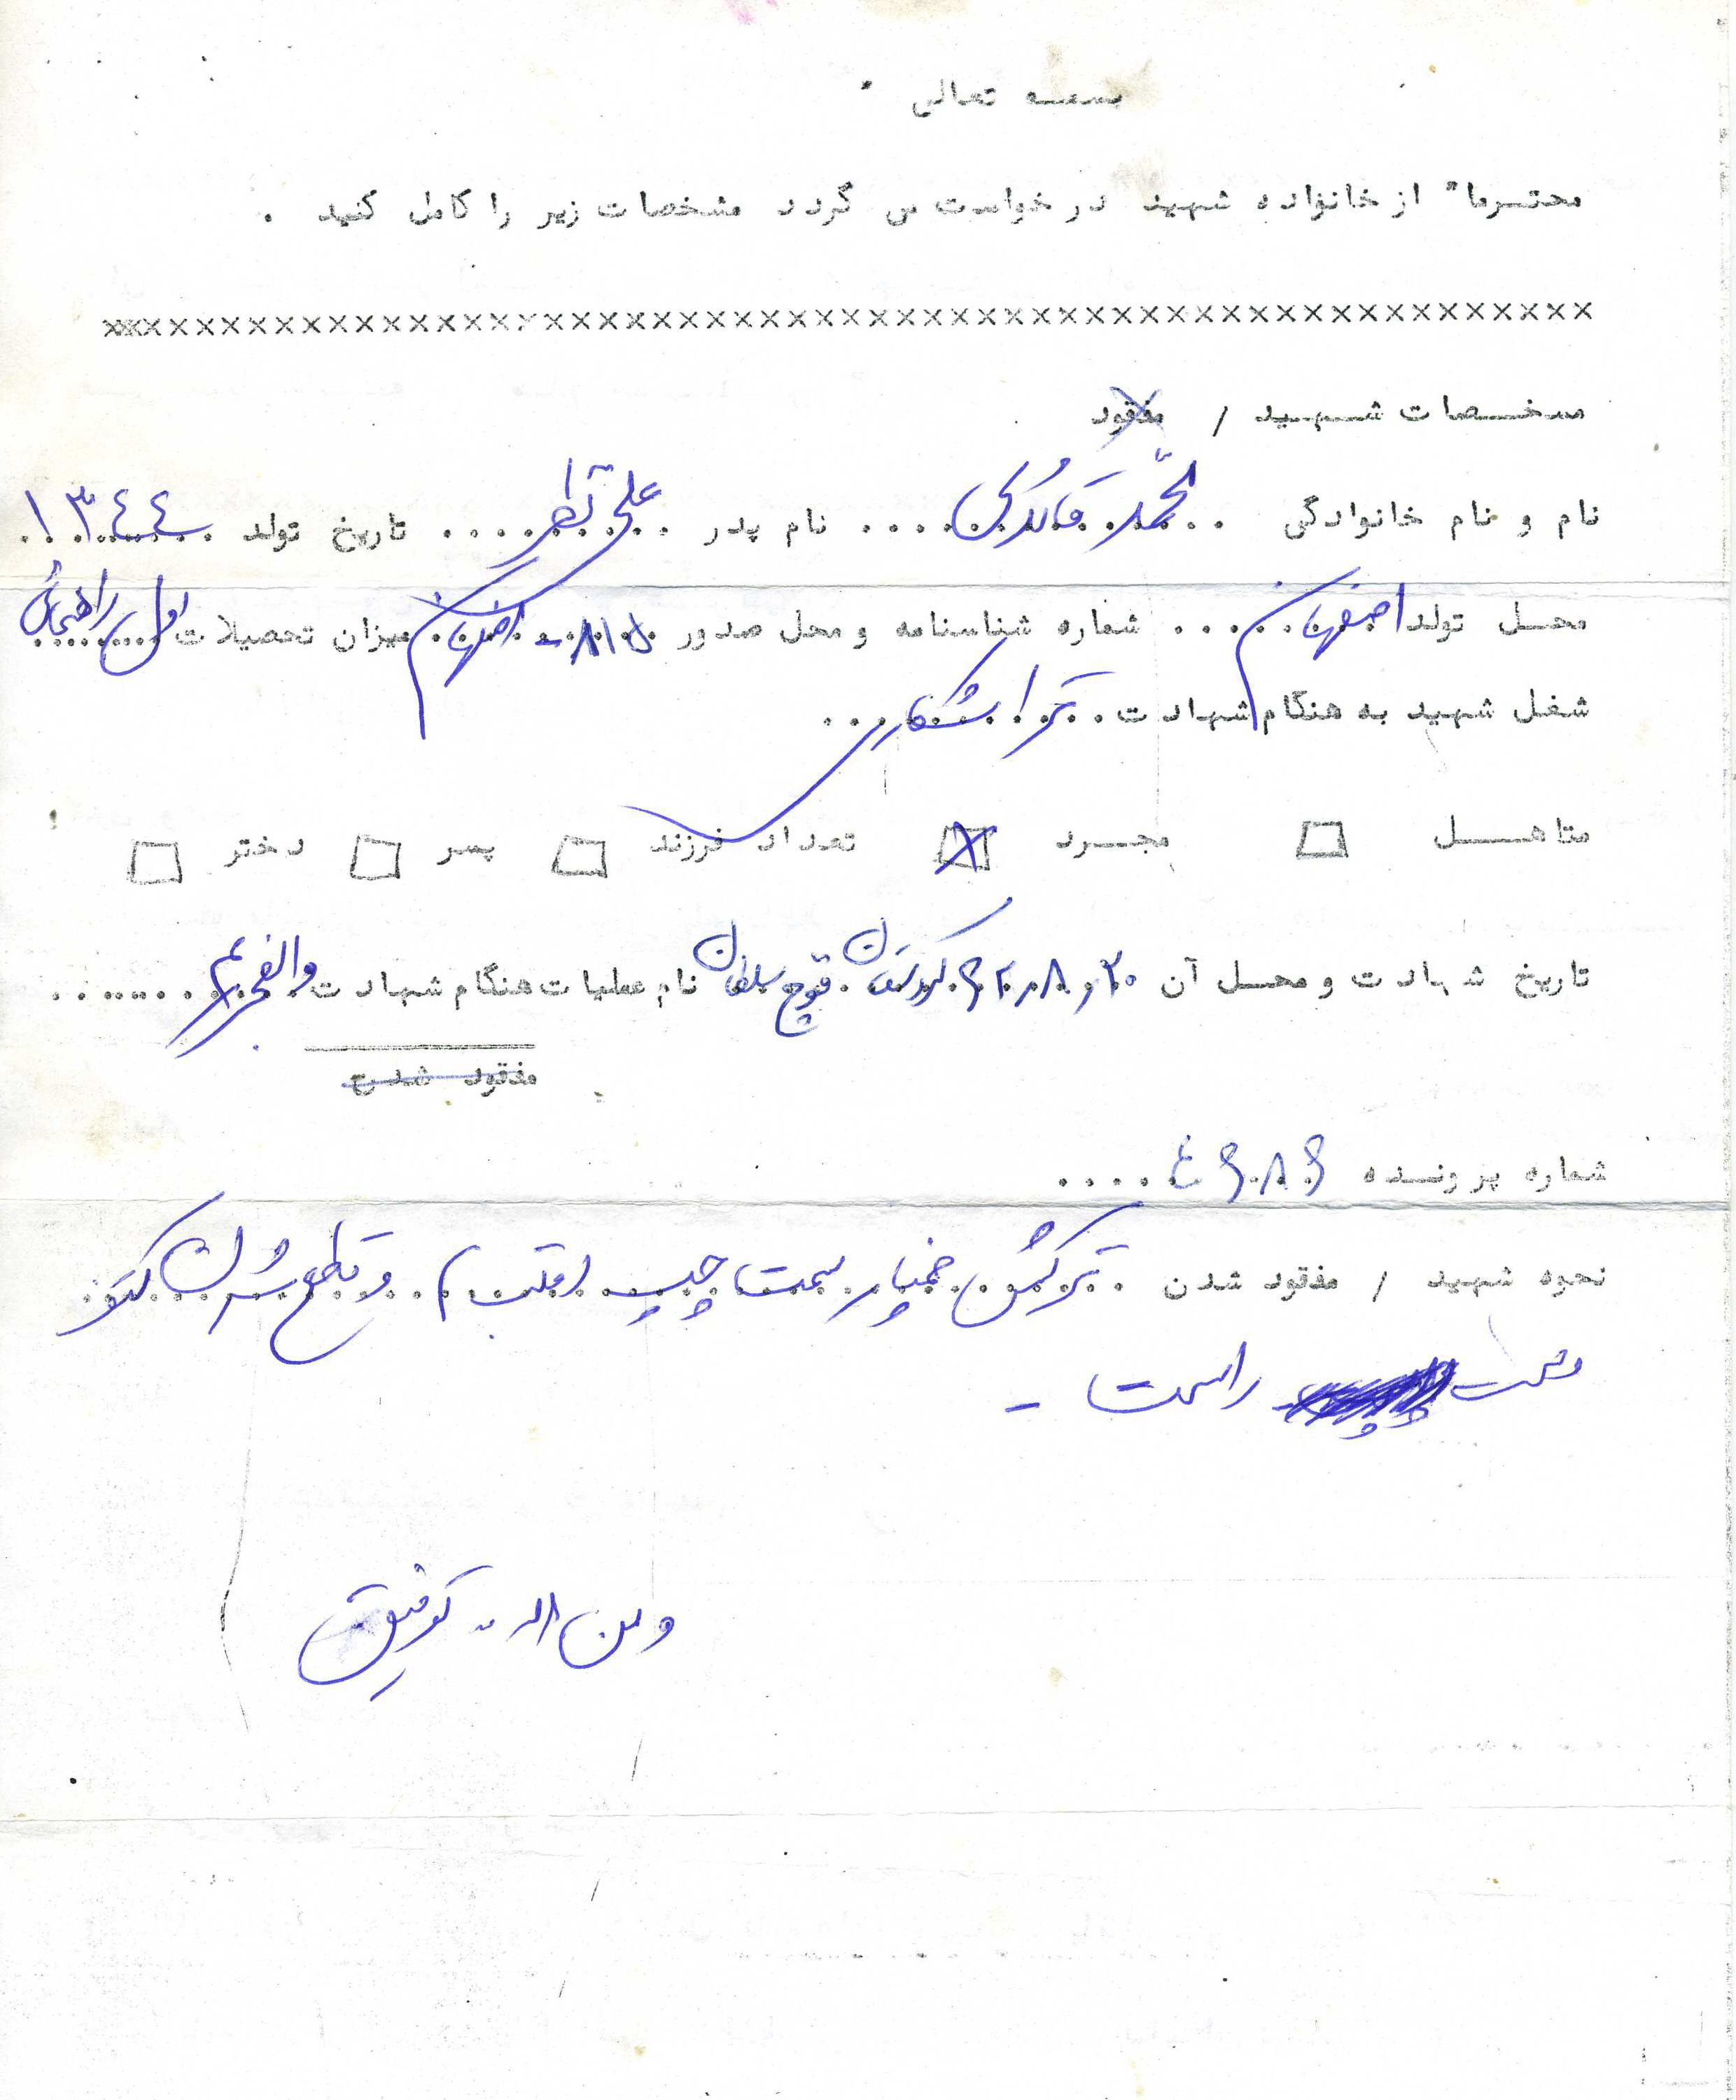 بسمه تعالی
محترما" از خانواده شهید درخواست می گردد مشخصات زیر را کامل کنید .
××××××××××××××××××××××××××××××××××××××××××××××××××××××××
مشخصات شهید / مفقود
نام و نام خانوادگی . محمد قائدی .... نام پدر . علی نظر .... تاریخ تولد ۱۳٤٤
محل تولد اصفهان .... شماره شناسنامه و محل صدور - اصفهان میزان تحصیلات اول راهنمائی
شغل شهید به هنگام شهادت . تراشکاری ...
متاهل □ مجرد ☒ تعداد فرزند □ پسر □ دختر □
تاریخ شهادت و محل آن ۲۰،۸،۶۲ کردستان . قوچ سلطان نام عملیات هنگام شهادت والفجر ۴ ......
مفقود شدن
شماره پرونده ۶۸۶٤ ....
نحوه شهید / مفقود شدن . ترکش خمپاره سمت چپ (قلب) . و قطع شدن کتف
قسمت راست -
و من الله توفیق